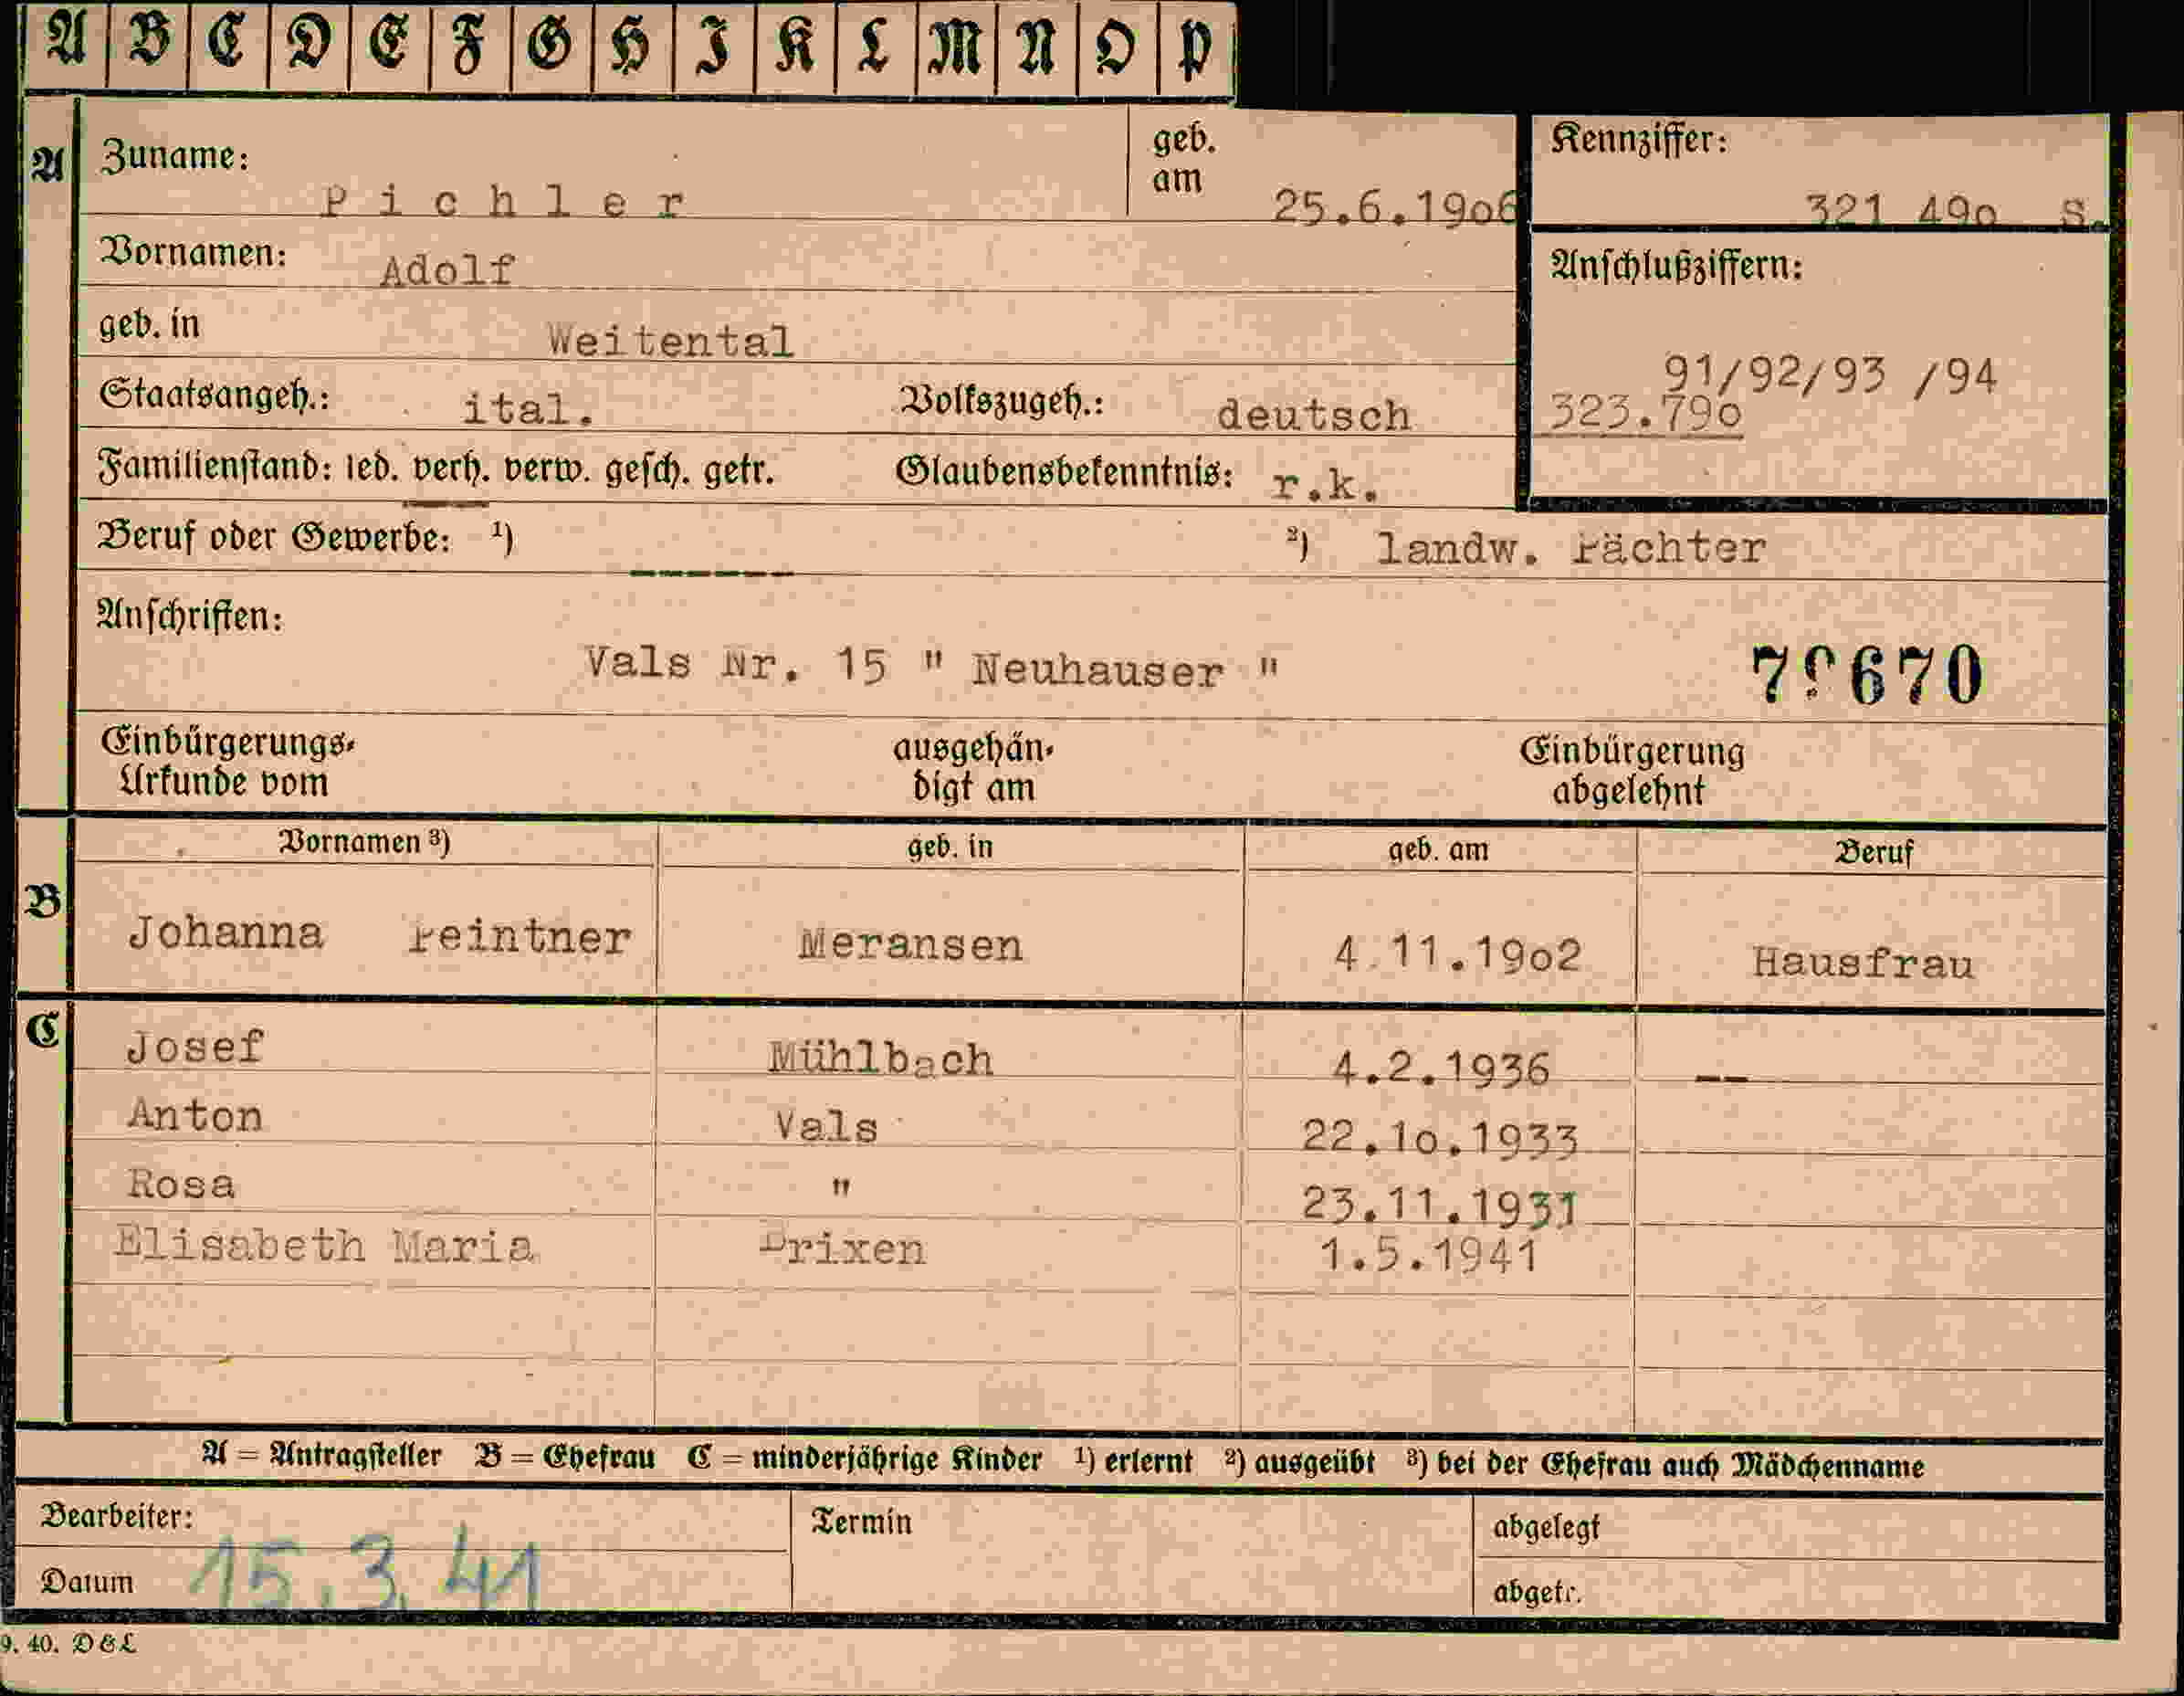 A B C D E F G H I K L M N O P
A Zuname: Pichler geb. am 25.6.1906
Kennziffer: 321 49o S.
Vornamen: Adolf
Anschlußziffern:
geb. in Weitental
91/92/93 /94
323.79o
Staatsangeh.: ital. Volkszugeh.: deutsch
Familienstand: led. verh. verw. gesch. getr. Glaubensbekenntnis: r.k.
Beruf oder Gewerbe: ¹) ------ ²) landw. Pächter
Anschriften:
Vals Nr. 15 " Neuhauser "
Einbürgerungs-Urkunde vom ausgehändigt am Einbürgerung abgelehnt
Vornamen ³) geb. in geb. am Beruf
B Johanna Peintner Meransen 4.11.19o2 Hausfrau
C Josef Mühlbach 4.2.1936 --
Anton Vals 22.1o.1933
Rosa " 23.11.1931
Elisabeth Maria Brixen 1.5.1941
A = Antragsteller B = Ehefrau C = minderjährige Kinder ¹) erlernt ²) ausgeübt ³) bei der Ehefrau auch Mädchenname
Bearbeiter: Termin abgelegt
Datum 15.3.41 abgetr.
9. 40. D&L